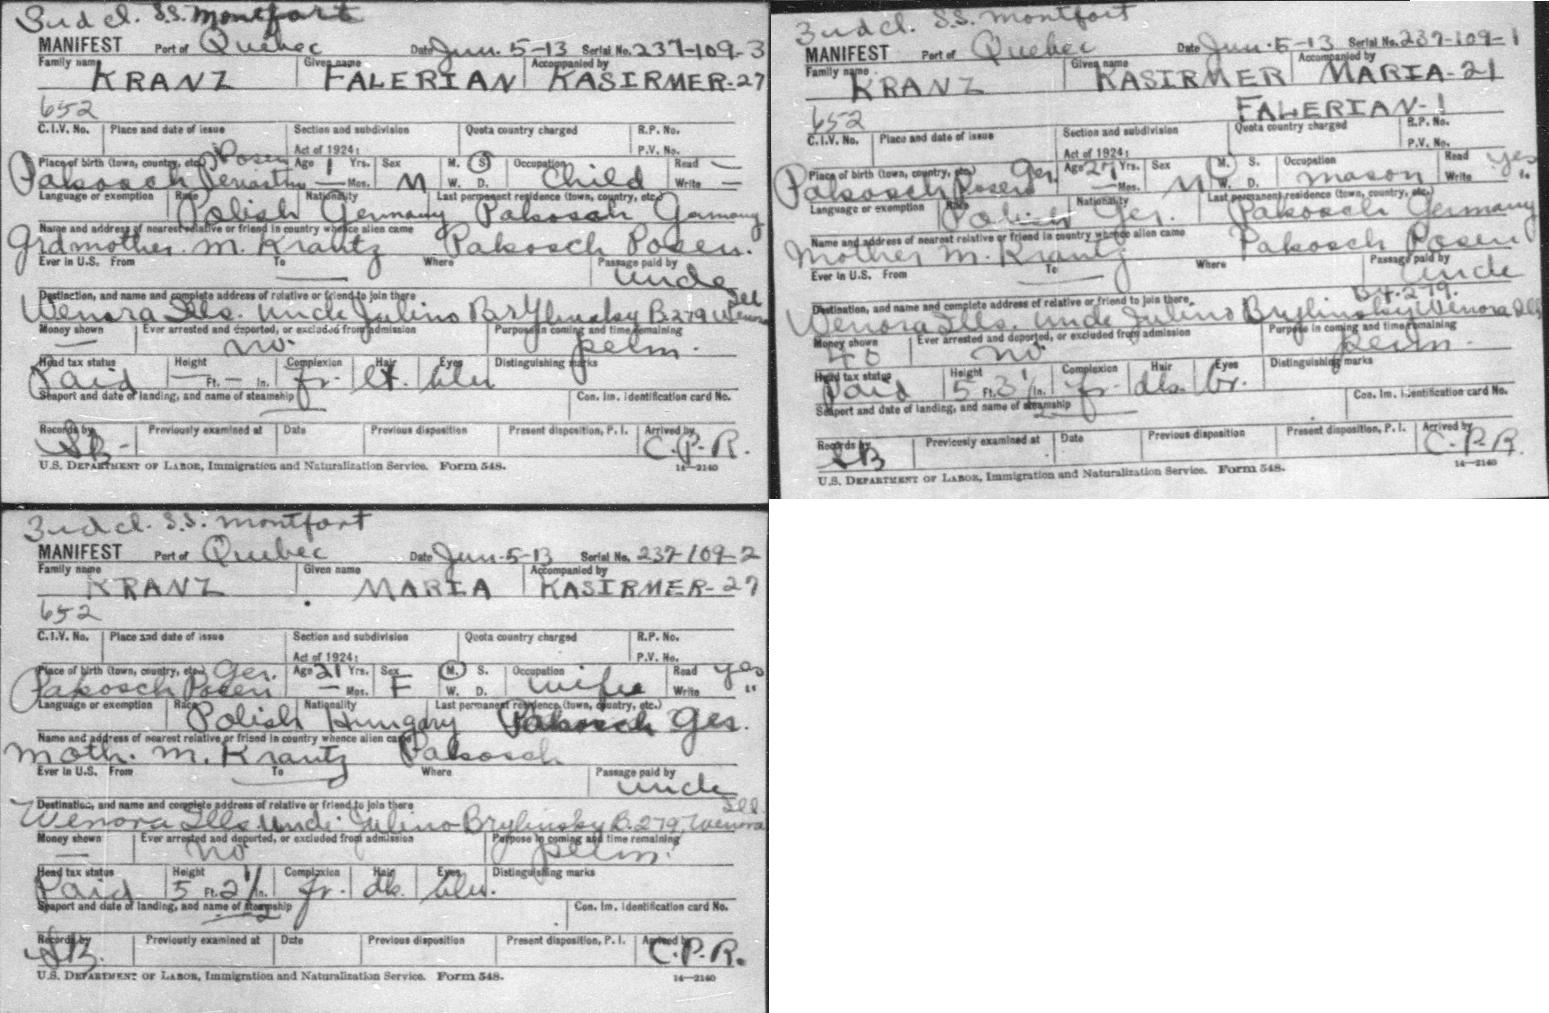 3rd cl. S.S. Montfort
MANIFEST Port of Quebec Date Jun. 5-13 Serial No. 237-109-3
Family name KRANZ Given name FALERIAN Accompanied by KASIRMER-27
652
C.I.V. No. Place and date of issue Section and subdivision Quota country charged R.P. No.
Act of 1924: P.V. No.
Place of birth (town, country, etc.) Posen Age 1 Yrs. Sex M. S. Occupation Read —
Pakosch — Mos. M W. D. Child Write —
Language or exemption Race Nationality Last permanent residence (town, country, etc.)
Polish Germany Pakosch Germany
Name and address of nearest relative or friend in country whence alien came
Grdmother. M. Krantz Pakosch Posen.
Ever in U.S. From To Where Passage paid by
— uncle
Destination, and name and complete address of relative or friend to join there Ill
Wenora Ills. Uncle Julino Brylinsky B.279 Wenora
Money shown Ever arrested and deported, or excluded from admission Purpose in coming and time remaining
— no. perm.
Head tax status Height Complexion Hair Eyes Distinguishing marks
Paid — Ft. — In. fr. lt. blu
Seaport and date of landing, and name of steamship Con. Im. Identification card No.
Records by Previously examined at Date Previous disposition Present disposition, P. I. Arrived by
SB- C.P.R.
U.S. DEPARTMENT OF LABOR, Immigration and Naturalization Service. Form 548. 14—2140
3rd cl. S.S. Montfort
MANIFEST Port of Quebec Date Jun. 5-13 Serial No. 237-109-1
Family name KRANZ Given name KASIRMER Accompanied by MARIA-21
652 FALERIAN-1
C.I.V. No. Place and date of issue Section and subdivision Quota country charged R.P. No.
Act of 1924: P.V. No.
Place of birth (town, country, etc.) Ger. Age 27 Yrs. Sex M. S. Occupation Read yes
Pakosch Posen — Mos. M W. D. mason Write "
Language or exemption Race Nationality Last permanent residence (town, country, etc.)
Polish Ger. Pakosch Germany
Name and address of nearest relative or friend in country whence alien came
Mother M. Krantz Pakosch Posen
Ever in U.S. From To Where Passage paid by
— uncle
Destination, and name and complete address of relative or friend to join there Bx. 279.
Wenora Ills. Uncle Julino Brylinsky Wenora Ills
Money shown Ever arrested and deported, or excluded from admission Purpose in coming and time remaining
40 no perm.
Head tax status Height Complexion Hair Eyes Distinguishing marks
Paid 5 Ft. 3½ In. fr dk. br.
Seaport and date of landing, and name of steamship Con. Im. Identification card No.
Records by Previously examined at Date Previous disposition Present disposition, P. I. Arrived by
SB C.P.R.
U.S. DEPARTMENT OF LABOR, Immigration and Naturalization Service. Form 548. 14—2140
3rd cl. S.S. Montfort
MANIFEST Port of Quebec Date Jun. 5-13 Serial No. 237-109-2
Family name KRANZ Given name MARIA Accompanied by KASIRMER-27
652
C.I.V. No. Place and date of issue Section and subdivision Quota country charged R.P. No.
Act of 1924: P.V. No.
Place of birth (town, country, etc.) Ger. Age 21 Yrs. Sex M. S. Occupation Read yes
Pakosch Posen — Mos. F W. D. wife Write "
Language or exemption Race Nationality Last permanent residence (town, country, etc.)
Polish Hungary Pakosch Ger.
Name and address of nearest relative or friend in country whence alien came
Moth. M. Krantz Pakosch
Ever in U.S. From To Where Passage paid by
— uncle
Destination, and name and complete address of relative or friend to join there Ill.
Wenora Ills. Uncle Julino Brylinsky B.279, Wenora
Money shown Ever arrested and deported, or excluded from admission Purpose in coming and time remaining
— no perm.
Head tax status Height Complexion Hair Eyes Distinguishing marks
Paid 5 Ft. 2½ In. fr. dk. blu.
Seaport and date of landing, and name of steamship Con. Im. Identification card No.
Records by Previously examined at Date Previous disposition Present disposition, P. I. Arrived by
SB. C.P.R.
U.S. DEPARTMENT OF LABOR, Immigration and Naturalization Service. Form 548. 14—2140